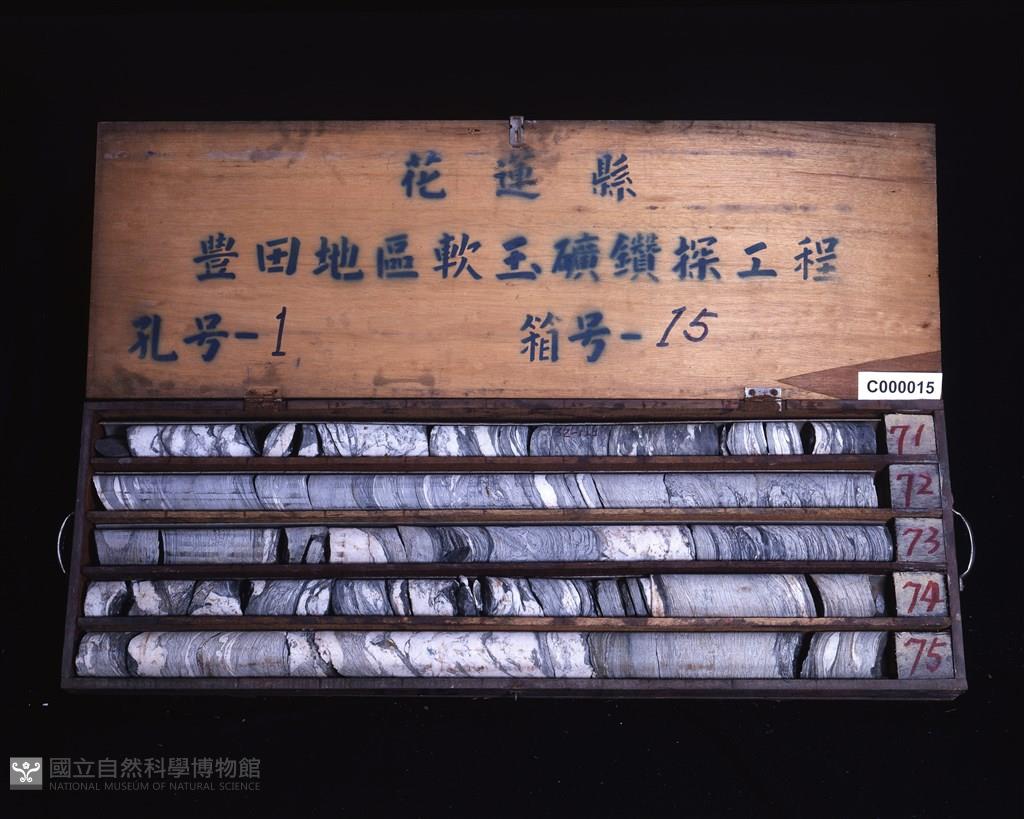 花蓮縣
豐田地區軟玉礦鑽探工程
孔号-1 箱号-15
C000015
71
72
73
74
75
國立自然科學博物館
NATIONAL MUSEUM OF NATURAL SCIENCE